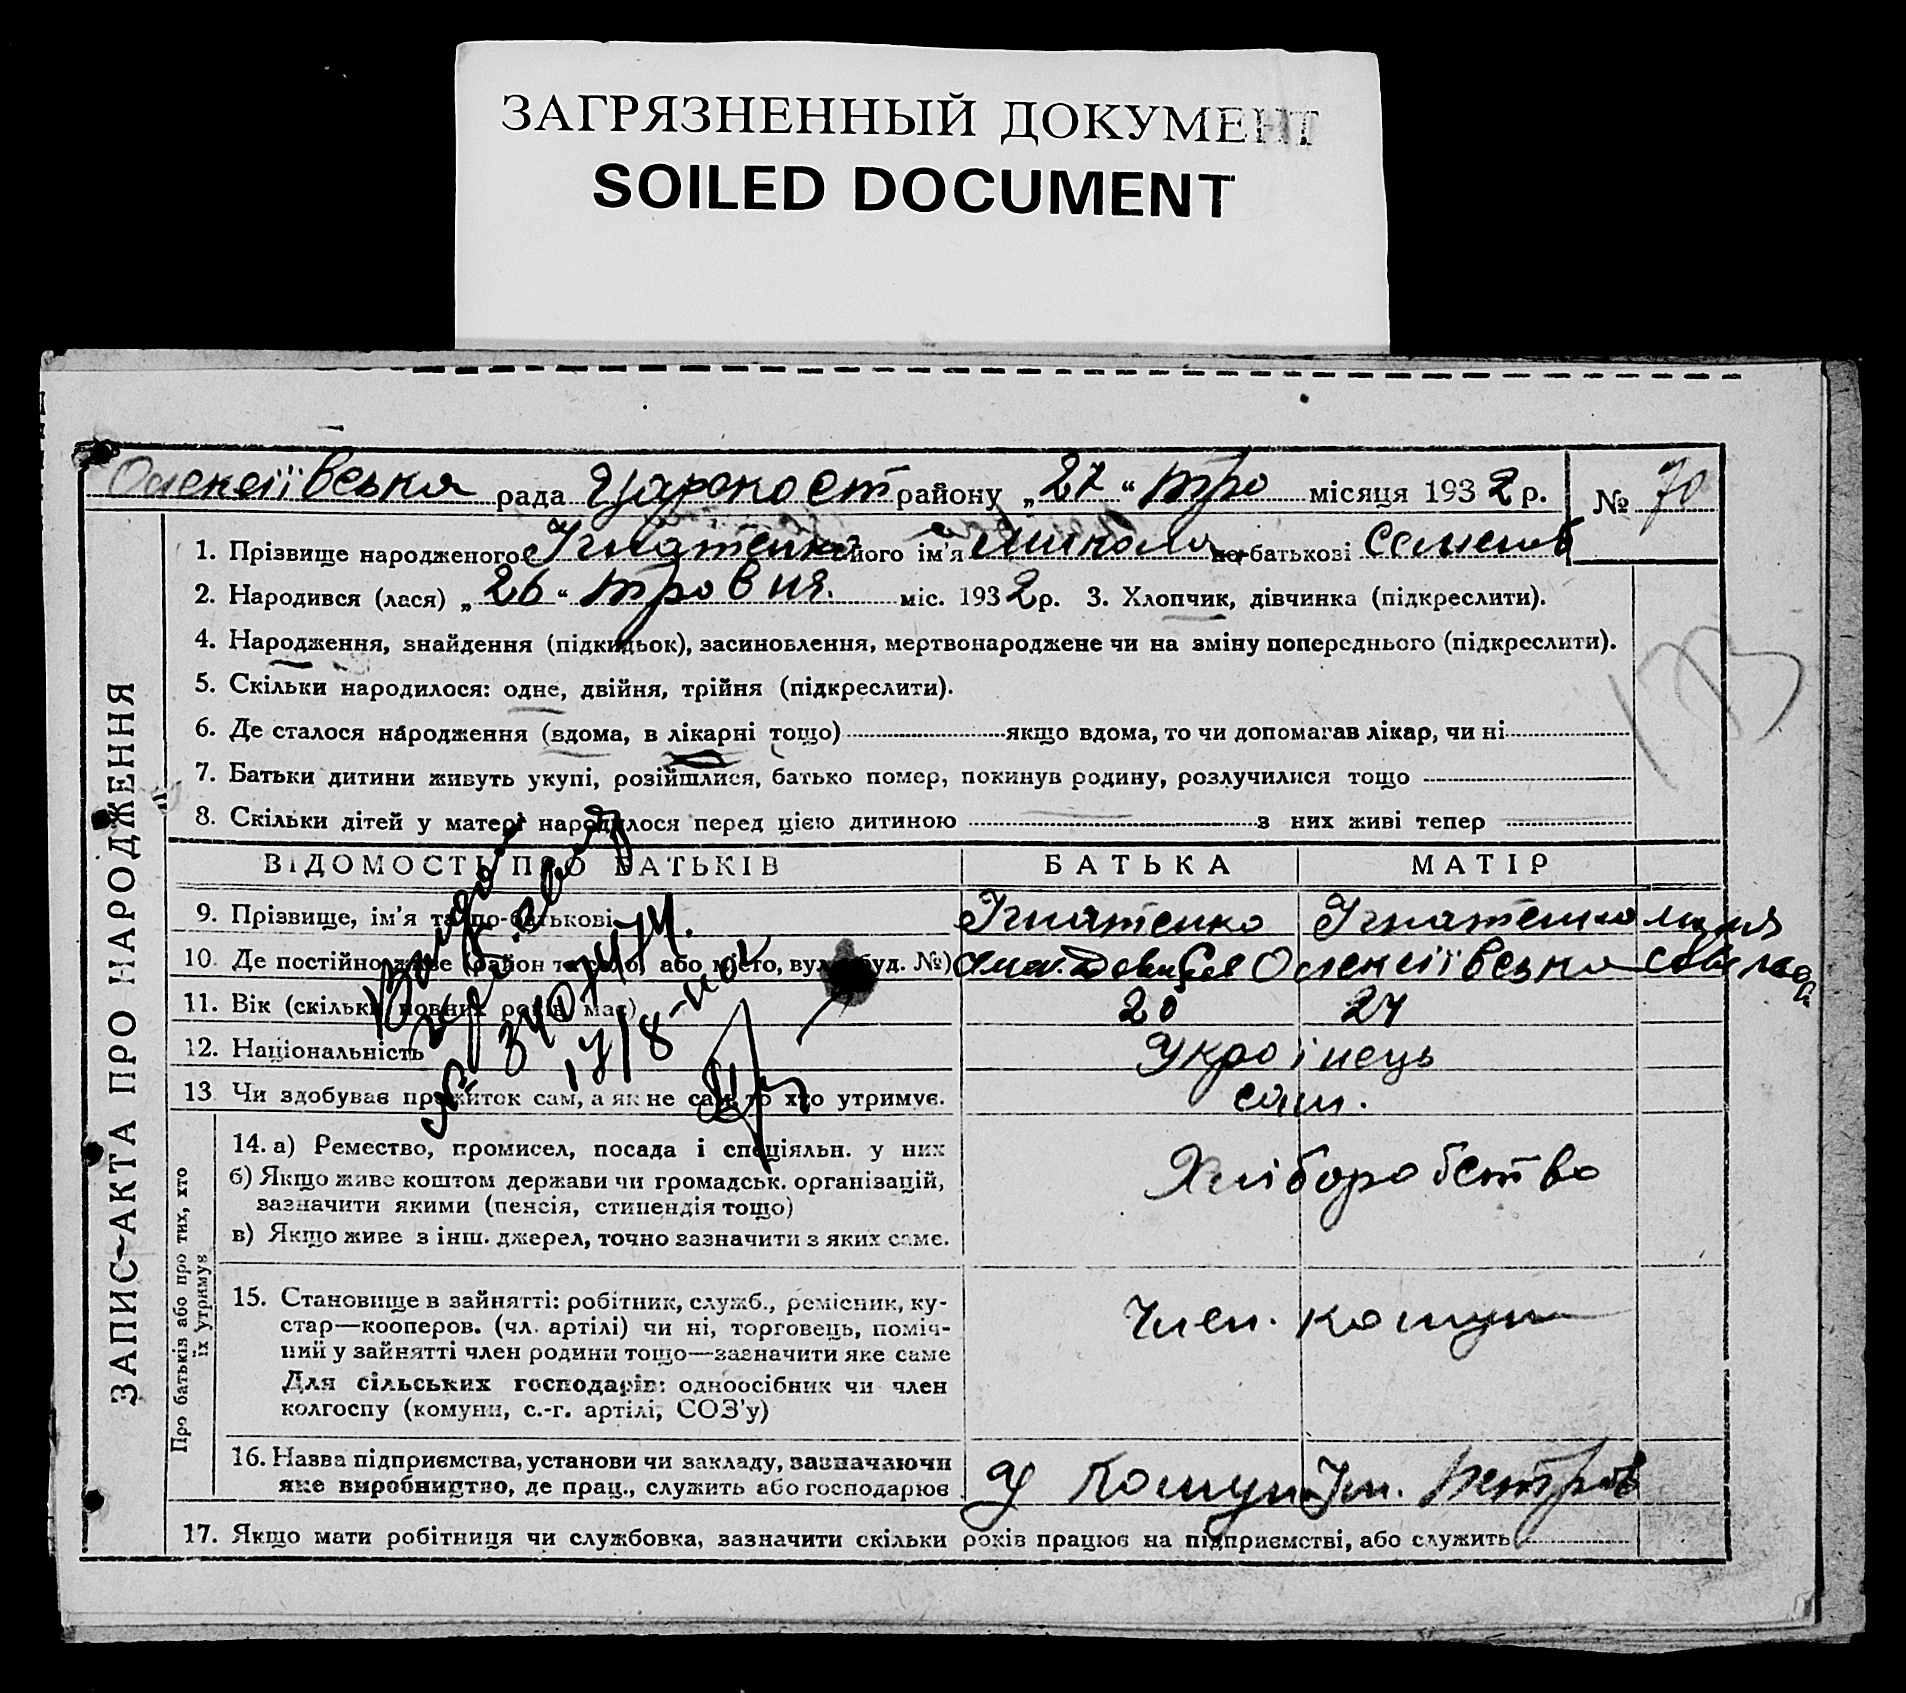 ЗАГРЯЗНЕННЫЙ ДОКУМЕНТ
SOILED DOCUMENT
Олексіївська рада Царекост району „27“ тра місяця 1932 р. № 70
1. Прізвище народженого Ігнатенко його ім'я Микола по-батькові Семенов
2. Народився (лася) „26“ травня. міс. 1932 р. 3. Хлопчик, дівчинка (підкреслити).
4. Народження, знайдення (підкидьок), засиновлення, мертвонароджене чи на зміну попереднього (підкреслити).
5. Скільки народилося: одне, двійня, трійня (підкреслити).
6. Де сталося народження (вдома, в лікарні тощо) якщо вдома, то чи допомагав лікар, чи ні
7. Батьки дитини живуть укупі, розійшлися, батько помер, покинув родину, розлучилися тощо
8. Скільки дітей у матері народилося перед цією дитиною з них живі тепер
ЗАПИС-АКТА ПРО НАРОДЖЕННЯ
ВІДОМОСТІ ПРО БАТЬКІВ БАТЬКА МАТІР
9. Прізвище, ім'я та по-батькові Ігнатенко Ігнатенко
10. Де постійно живе (район та село, або місто, вул. буд. №) Олексіївська
11. Вік (скільки повних років має) 20 24
12. Національність Українець
13 Чи здобуває прожиток сам, а як не сам, то хто утримує. сам.
340474
17/8
Про батьків або про тих, хто
їх утримує
14. а) Ремество, промисел, посада і спеціяльн. у них Хліборобство
б) Якщо живе коштом держави чи громадськ. організацій,
зазначити якими (пенсія, стипендія тощо)
в) Якщо живе з інш. джерел, точно зазначити з яких саме.
15. Становище в зайнятті: робітник, служб., ремісник, ку-
стар—кооперов. (чл. артілі) чи ні, торговець, поміч-
ний у зайнятті член родини тощо—зазначити яке саме
Член. комуни
Для сільських господарів: одноосібник чи член
колгоспу (комуни, с.-г. артілі, СОЗ'у)
16. Назва підприємства, установи чи закладу, зазначаючи
яке виробництво, де прац., служить або господарює у Комуні Ім. Петров
17. Якщо мати робітниця чи службовка, зазначити скільки років працює на підприємстві, або служить